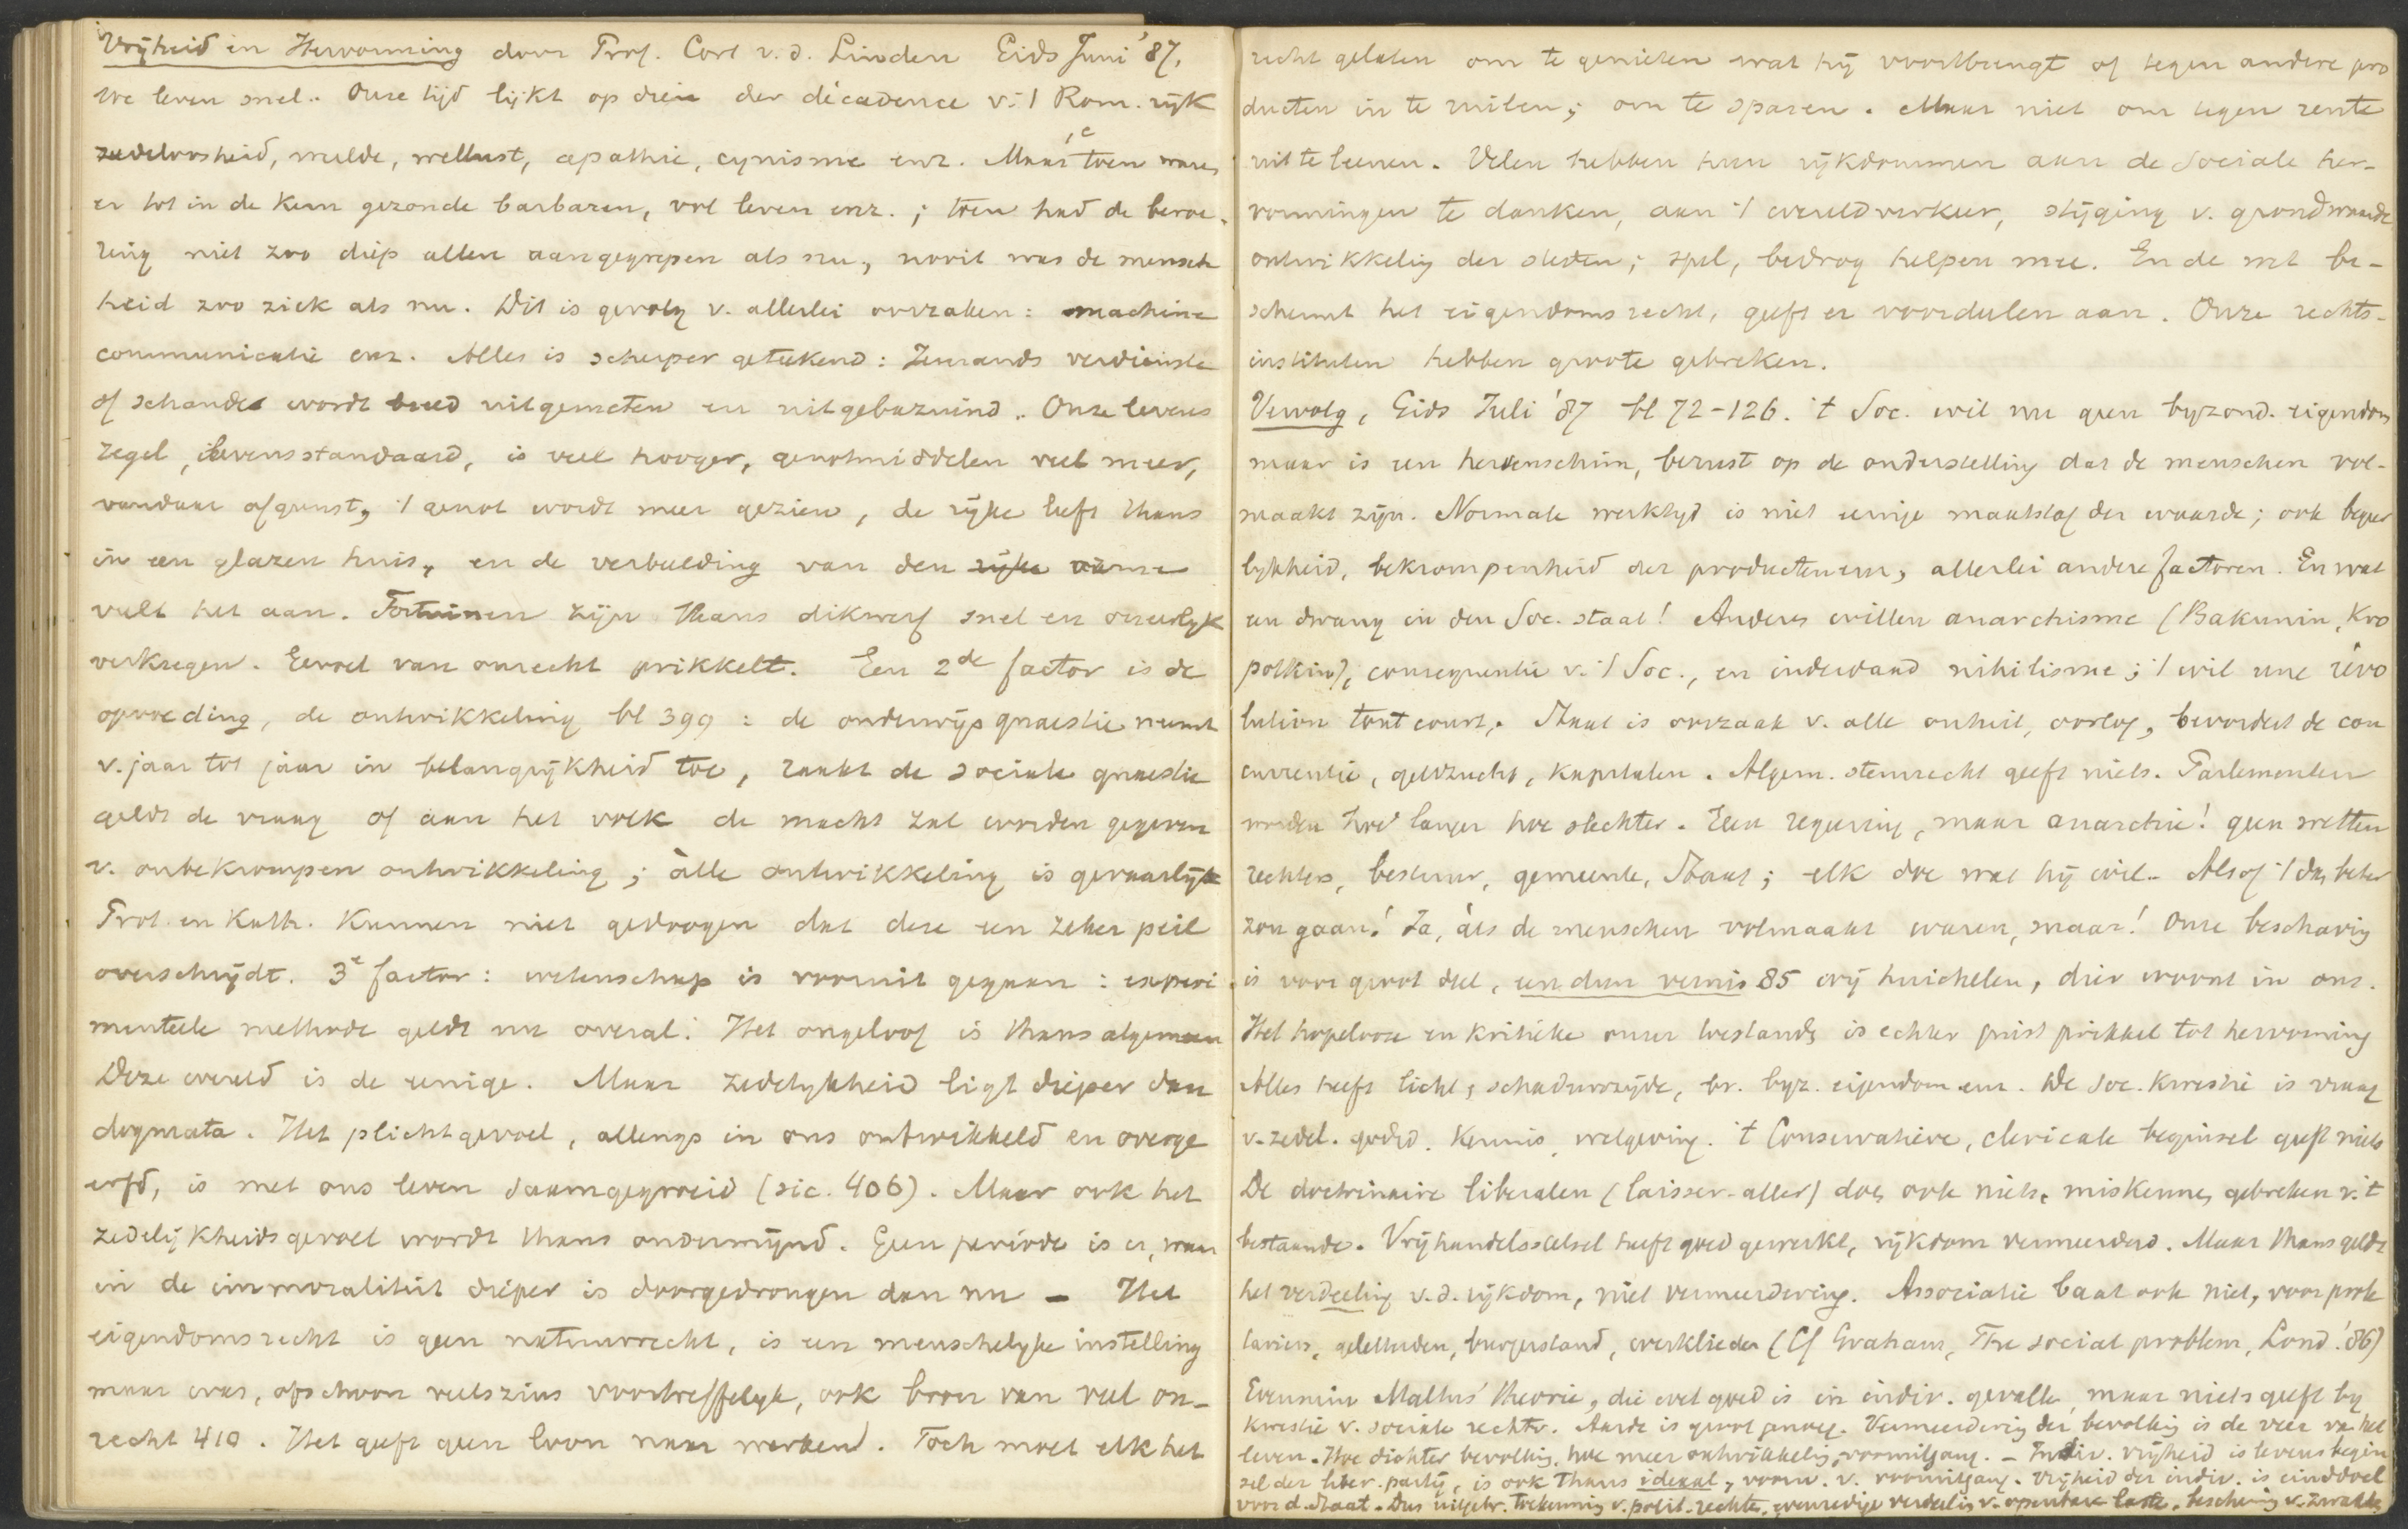 Vrijheid en Hervorming door Prof. Cort v. d. Linden Gids Juni '87.
We leven snel. Onze tijd lijkt op dien der décadence v. 't Rom. rijk
zedeloosheid, weelde, wellust, apathie, cynisme enz. Maar toen waren
er tot in de kern gezonde barbaren, vol leven enz.; toen had de beroe-
ring niet zoo diep allen aangegrepen als nu, nooit was de mensch
heid zoo ziek als nu. Dit is gevolg v. allerlei oorzaken: machine
communicatie enz. Alles is scherper geteekend: Iemands verdienste
of schande wordt breed uitgemeten en uitgebazuind. Onze levens
regel, levensstandaard, is veel hooger, genotmiddelen veel meer,
vandaar afgunst, 't genot wordt meer gezien, de rijke leeft thans
in een glazen huis, en de verbeelding van den rijke arme
vult het aan. Fortuinen zijn thans dikwerf snel en oneerlijk
verkregen. Gevoel van onrecht prikkelt. Een 2de factor is de
opvoeding, de ontwikkeling bl 399: de onderwijs quaestie neemt
v. jaar tot jaar in belangrijkheid toe, raakt de sociale quaestie
geldt de vraag of aan het volk de macht zal worden gegeven
v. onbekrompen ontwikkeling; àlle ontwikkeling is gevaarlijk
Prot. en Kath. kunnen niet gedoogen dat deze een zeker peil
overschrijdt. 3e factor: wetenschap is vooruit gegaan: experi
menteele methode geldt nu overal. Het ongeloof is thans algemeen
Deze wereld is de eenige. Maar zedelykheid ligt dieper dan
dogmata. Het plichtgevoel, allengs in ons ontwikkeld en overge
erfd, is met ons leven saamgegroeid (sic. 406). Maar ook het
zedelijkheidsgevoel wordt thans ondermijnd. Geen periode is er, waar
in de immoraliteit dieper is doorgedrongen dan nu – Het
eigendomsrecht is geen natuurrecht, is een menschelyke instelling
maar was, ofschoon veelszins voortreffelyk, ook bron van veel on-
recht 410. Het geeft geen loon naar werken. Toch moet elk het
recht gelaten om te genieten wat hij voortbrengt of tegen andere pro
ducten in te ruilen; om te sparen. Maar niet om tegen rente
uit te leenen. Velen hebben hun rijkdommen aan de sociale her-
vormingen te danken, aan 't wereldverkeer, stijging v. grondwaarde
ontwikkeling der steden; spel, bedrog helpen mee. En de wet be-
schermt het eigendomsrecht, geeft er voordeelen aan. Onze rechts-
instituten hebben groote gebreken.
Vervolg, Gids Juli '87 bl 72-126. 't Soc. wil nu geen byzond. eigendom
maar is een hersenschim, berust op de onderstelling dat de menschen vol-
maakt zijn. Normale werktijd is niet eenige maatstaf der waarde; ook begeer
lykheid, bekrompenheid der producten enz, allerlei andere factoren. En wat
een dwang in den Soc. staat! Anderen willen anarchisme (Bakunin, Kro
potkin), consequentie v. 't Soc., en inderdaad nihilisme; 't wil une révo
lution tout court. Staat is oorzaak v. alle onheil, oorlog, bevordert de con
currentie, geldzucht, kapitalen. Algem. stemrecht geeft niets. Parlementen
worden hoe langer hoe slechter. Geen regeering, maar anarchie! geen wetten
rechters, bestuur, gemeente, Staat; elk doe wat hij wil. Alsof 't dan beter
zou gaan! Ja, als de menschen volmaakt waren, maar! Onze beschaving
is voor groot deel, een dun vernis 85 wij huichelen, dier woont in ons.
Het hopelooze en kritieke onzer toestands is echter juist prikkel tot hervorming
Alles heeft licht, schaduwzijde, bv. byz. eigendom enz. De soc. kwestie is vraag
v. zedel. godsd. kennis, wetgeving. 't Conservatieve, clericale beginsel geeft niets
De doctrinaire liberalen (laisser-aller) doen ook niets, miskennen gebreken v. 't
bestaande. Vrijhandelsstelsel heeft goed gewerkt, rijkdom vermeerderd. Maar thans geldt
het verdeeling v. d. rijkdom, niet vermeerdering. Associatie baat ook niet, voor prole
tariers, geletterden, burgerstand, werklieden (Cf Graham, The social problem, Lond. '86)
Evenmin Malthus' theorie, die wel goed is in indiv. gevallen, maar niets geeft by
kwestie v. sociale rechtv. Aarde is groot genoeg. Vermeerdering der bevolking is de veer van het
leven. Hoe dichter bevolking, hoe meer ontwikkeling, vooruitgang. – Indiv. vrijheid is levensbegin
sel der liber. partij, is ook thans ideaal, voorw. v. vooruitgang. Vrijheid der indiv. is einddoel
voor d. Staat. Dus uitgebr. toekenning v. polit. rechten, evenredige verdeeling v. openbare lasten, bescherming v. zwakken